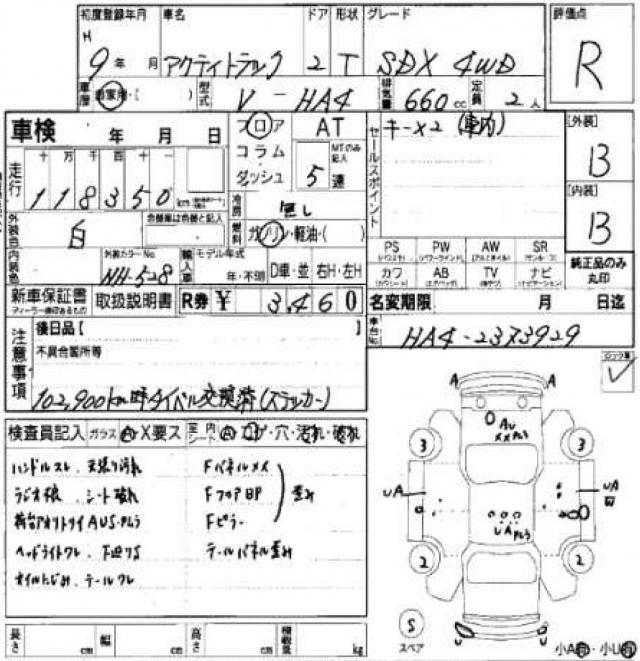 初度登録年月 車名 ドア 形状 グレード 評価点
H 9年 月 アクティトラック 2 T SDX 4WD R
車歴 自家用・( ) 型式 V-HA4 排気量 660cc 定員 2人
車検 年 月 日 フロア AT セールスポイント キー×2 (車内) [外装] B
コラム MTのみ記入
走行 十 万 千 百 十 一 ダッシュ 5速
118350 km
冷房 無し [内装] B
外装色 白 色替車は色替と記入 燃料 ガソリン・軽油・( )
PS PW AW SR
内装色 外装カラーNo. NH-528 輸入車 モデル年式 年・不明 D車・並 右H・左H
カワ AB TV ナビ 純正品のみ丸印
新車保証書 取扱説明書 R券 ¥ 3,460 名変期限 月 日迄
ディーラー捺印あるもの
車台No. HA4-2373929
注意事項 後日品[
不具合箇所等
102,900km時タイベル交換済(ステッカー)
検査員記入 ガラス A・X要ス 室内 シート A・コゲ・穴・汚れ・破れ
ハンドルスレ、天張り汚れ FパネルメX
ラジオ板、シート破れ FフロアBP 歪み
荷台アオリトリイAUS・Pムラ Fピラー
ヘッドライトワレ、下廻りS テールパネル歪み
オイルにじみ、テールワレ
長さ cm 幅 cm 高さ cm 積載量 kg
A A
AU
XXPムラ
3 3
UA UA
凹
UAPムラ
2 2
S
スペア
小A有・小U有